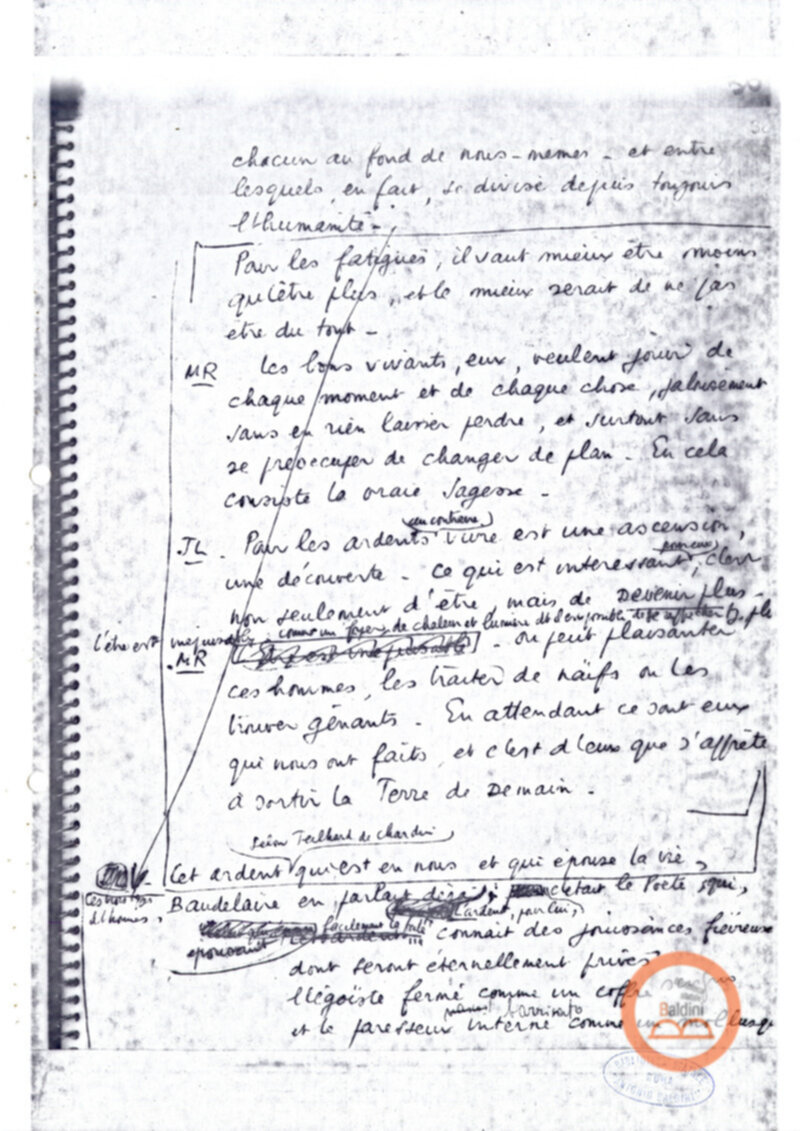 30
chacun au fond de nous-mêmes - et entre
lesquels, en fait, se divise depuis toujours
l'humanité -
Pour les fatigués, il vaut mieux être moins
qu'être plus, et le mieux serait de ne pas
être du tout -
MR Les bons vivants, eux, veulent jouir de
chaque moment et de chaque chose, jalousement
sans en rien laisser perdre, et surtout sans
se préoccuper de changer de plan - En cela
consiste la vraie sagesse -
au contraire
JL - Pour les ardents vivre est une ascension,
pour eux
une découverte - ce qui est intéressant, c'est
non seulement d'être, mais de DEVENIR plus -
l'être est inépuisable comme un foyer de chaleur et lumière dt il est possible de se
MR - on peut plaisanter
ces hommes, les traiter de naïfs ou les
trouver gênants - En attendant ce sont eux
qui nous ont faits, et c'est d'eux que s'apprête
à sortir la Terre de Demain -
selon Teilhard de Chardin
Cet ardent qui est en nous et qui épouse la vie,
Ces trois types
d'hommes,
Baudelaire en parlait déjà: c'était le Poète qui,
L'ardent, pour lui,
épousant facilement la foule
connaît des jouissances fiévreuses
dont seront éternellement privés
l'égoïste fermé comme un coffre
et le paresseux interné comme un mollusque
Baldini